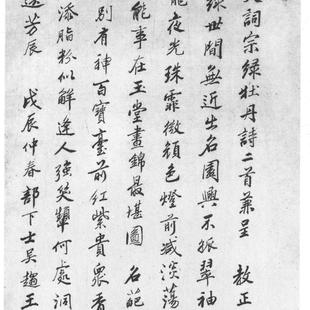 詞宗綠牡丹詩二首兼呈 教正
綠世間無近出名園興不孤翠袖
能夜光珠霏微顏色燈前減淡蕩
能事在玉堂晝錦最堪圖 名葩
別有神百寶臺前紅紫貴眾香
添脂粉似解逢人強笑顰何處洞
芳辰 戊辰仲春部下士吳趨王